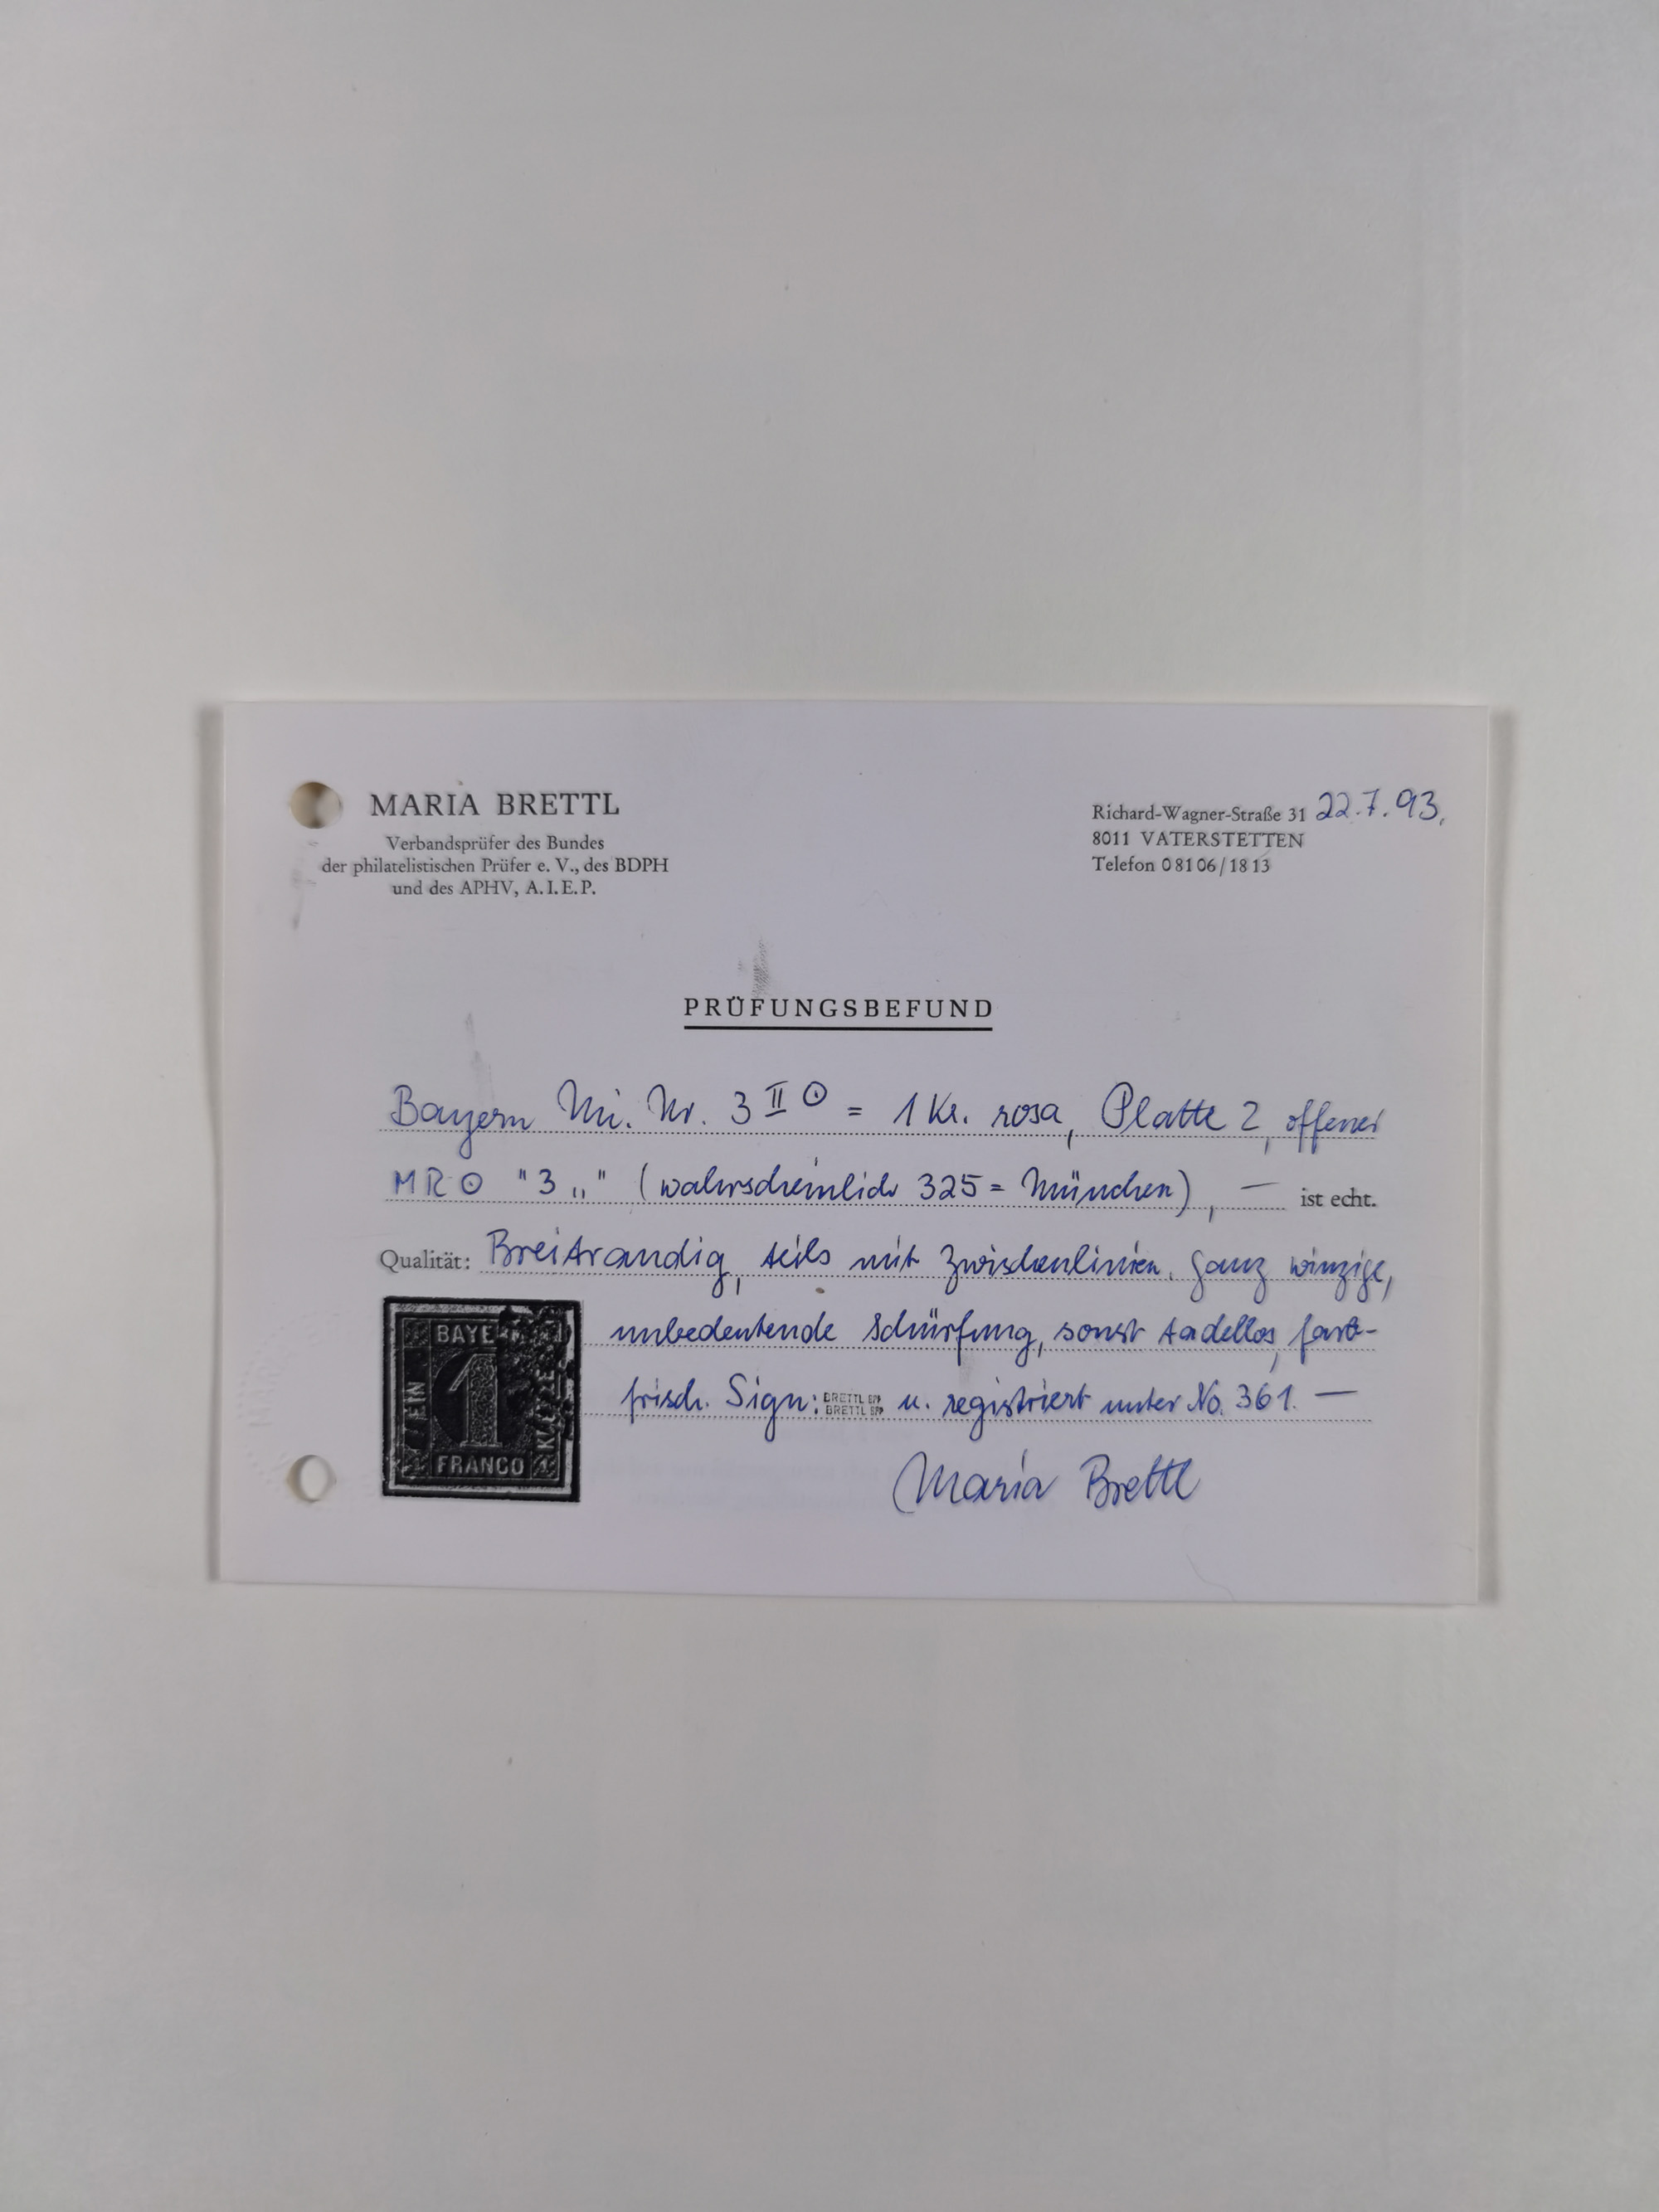 MARIA BRETTL
Verbandsprüfer des Bundes
der philatelistischen Prüfer e. V., des BDPH
und des APHV, A.I.E.P.
Richard-Wagner-Straße 31 22.7.93.
8011 VATERSTETTEN
Telefon 08106/1813
PRÜFUNGSBEFUND
Bayern Mi. Nr. 3 II ⊙ = 1 Kr. rosa, Platte 2, offener
MR ⊙ "3 „" (wahrscheinlich 325 = München), — ist echt.
Qualität: Breitrandig, teils mit Zwischenlinien. Ganz winzige,
unbedeutende Schürfung, sonst tadellos, farb-
frisch. Sign: BRETTL BPP u. registriert unter No. 361. —
BRETTL BPP
BAYE
EIN
1
KREUZER
FRANCO
Maria Brettl